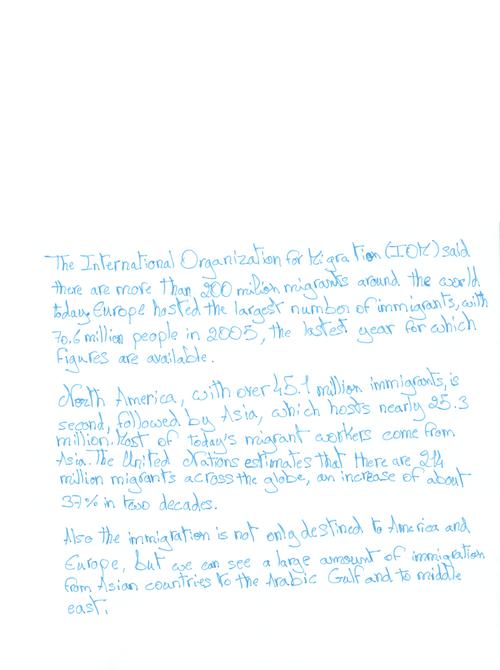 The International Organization for Migration (IOM) said
there are more than 200 million migrants around the world
today. Europe hosted the largest number of immigrants, with
70.6 million people in 2005, the lastest year for which
figures are available.
North America, with over 45.1 million immigrants, is
second, followed by Asia, which hosts nearly 25.3
million. Most of today's migrant workers come from
Asia. The United Nations estimates that there are 214
million migrants across the globe, an increase of about
37% in two decades.
Also the immigration is not only destined to America and
Europe, but we can see a large amount of immigration
from Asian countries to the Arabic Gulf and to middle
east.